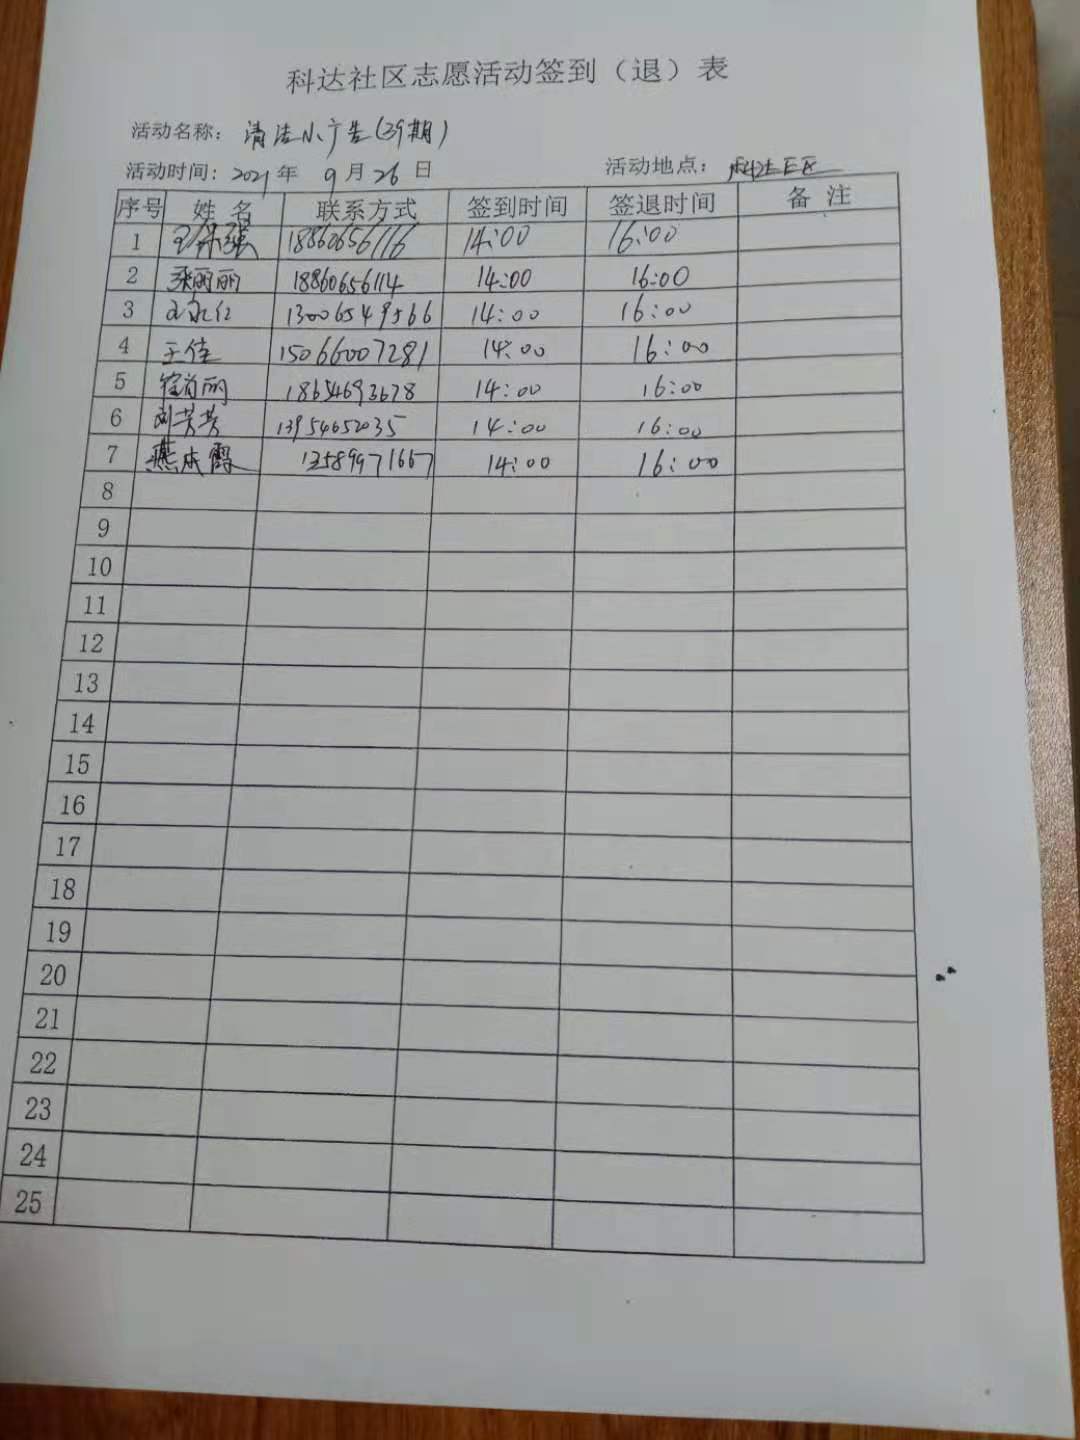 科达社区志愿活动签到（退）表
活动名称： 清洁小广告(39期)
活动时间: 2021 年 9 月 26 日 活动地点：
序号 姓 名 联系方式 签到时间 签退时间 备 注
1 18860656116 14:00 16:00
2 张丽丽 18860656114 14:00 16:00
3 13006549566 14:00 16:00
4 王佳 15066007281 14:00 16:00
5 18654693678 14:00 16:00
6 刘芳芳 13954652035 14:00 16:00
7 燕成霞 13589971667 14:00 16:00
8
9
10
11
12
13
14
15
16
17
18
19
20
21
22
23
24
25